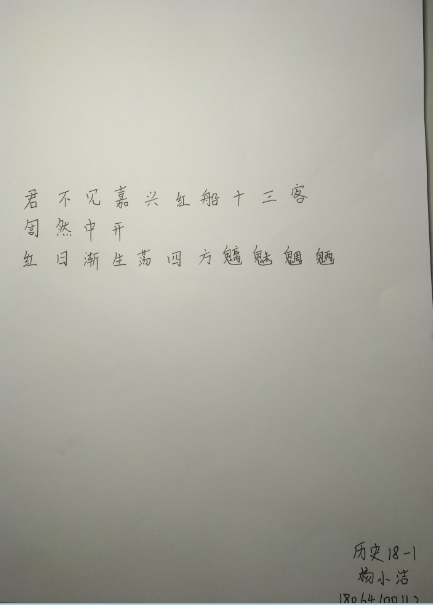 君不见嘉兴红船十三客
訇然中开
红日渐生荡四方魑魅魍魉
历史18-1
杨小洁